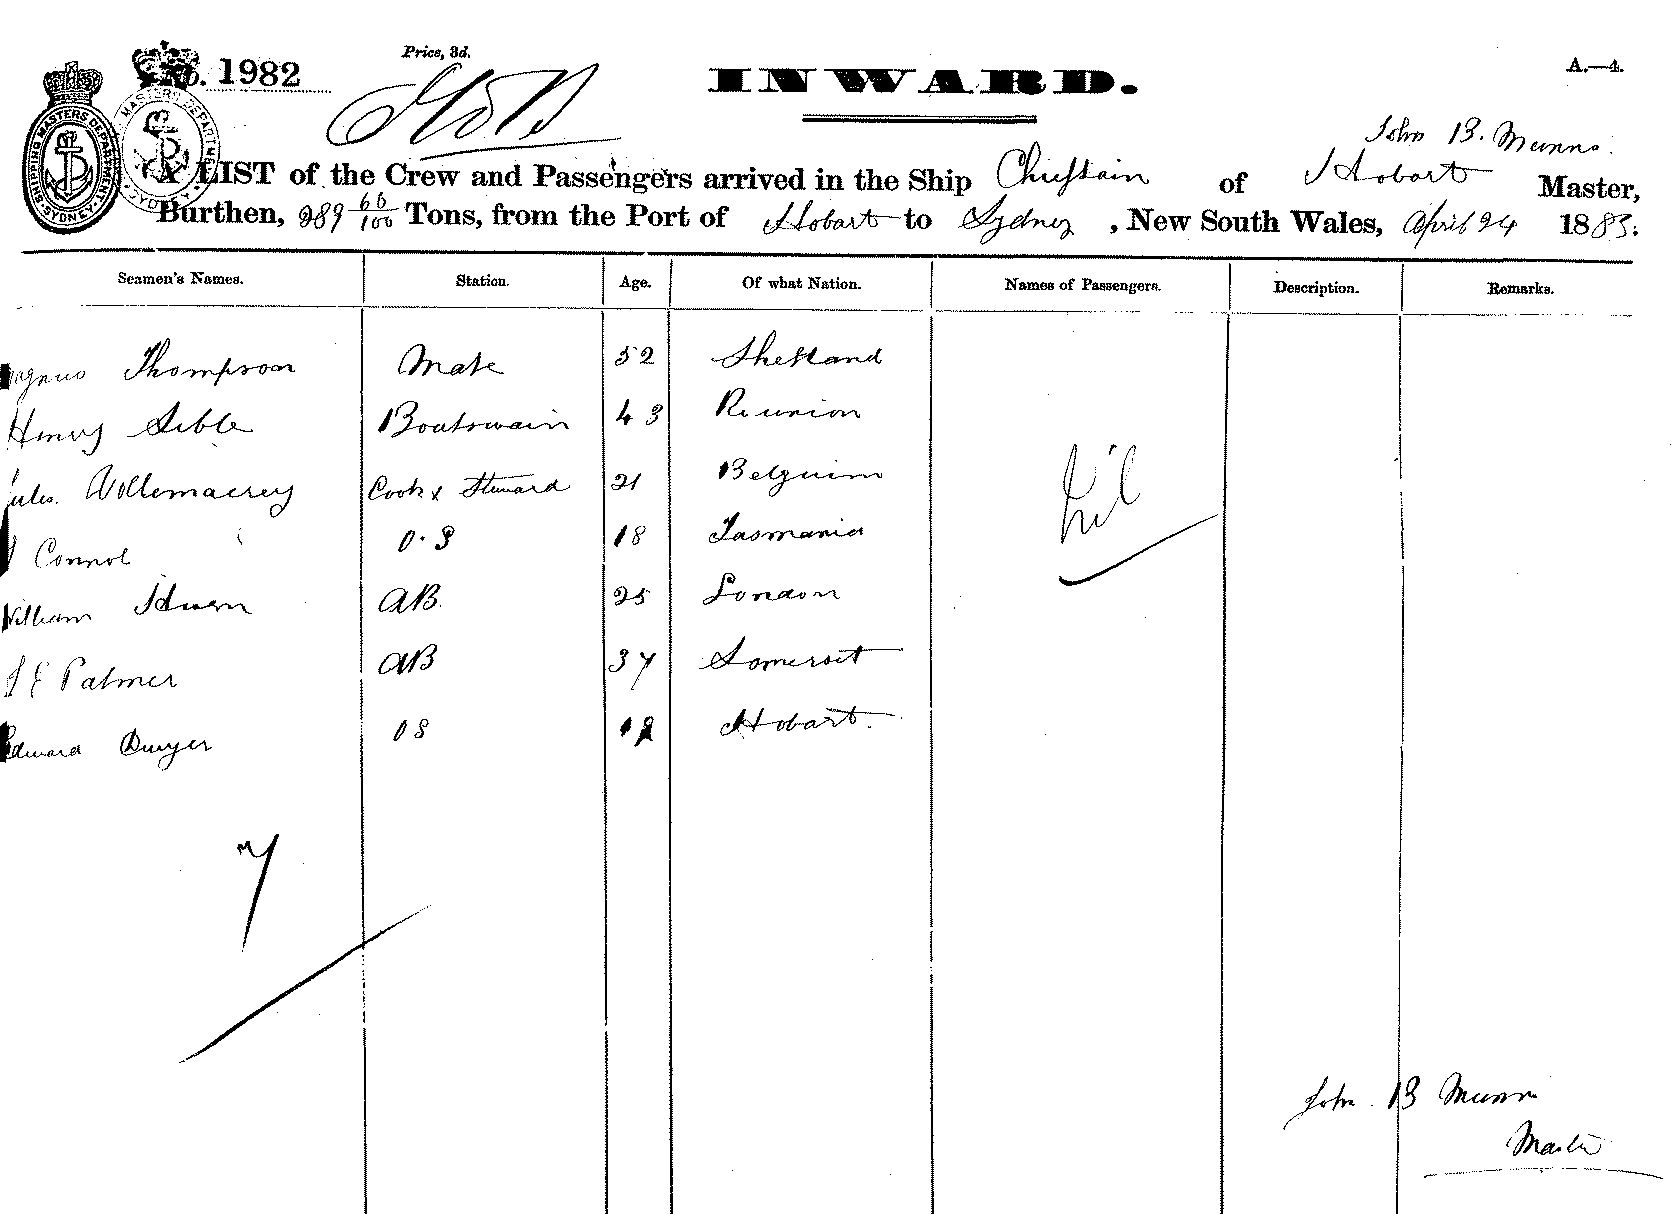 No. 1982
Price, 3d.
INWARD.
A.—4.
SHIPPING MASTERS DEPARTMENT SYDNEY
John B. Munns.
A LIST of the Crew and Passengers arrived in the Ship Chieftain of Hobart Master,
Burthen, 289 66/100 Tons, from the Port of Hobart to Sydney, New South Wales, April 24 1883.
Seamen's Names. Station. Age. Of what Nation. Names of Passengers. Description. Remarks.
Thompson Mate 52 Shetland
Henry Sible Boatswain 43 Reunion
Jules. Cook & Steward 21 Belguim
Connol O.S 18 Tasmania
William AB. 25 London
Palmer AB 37 Somerset
Edward Dwyer OS 18 Hobart.
Nil
7
John B Munns
Master